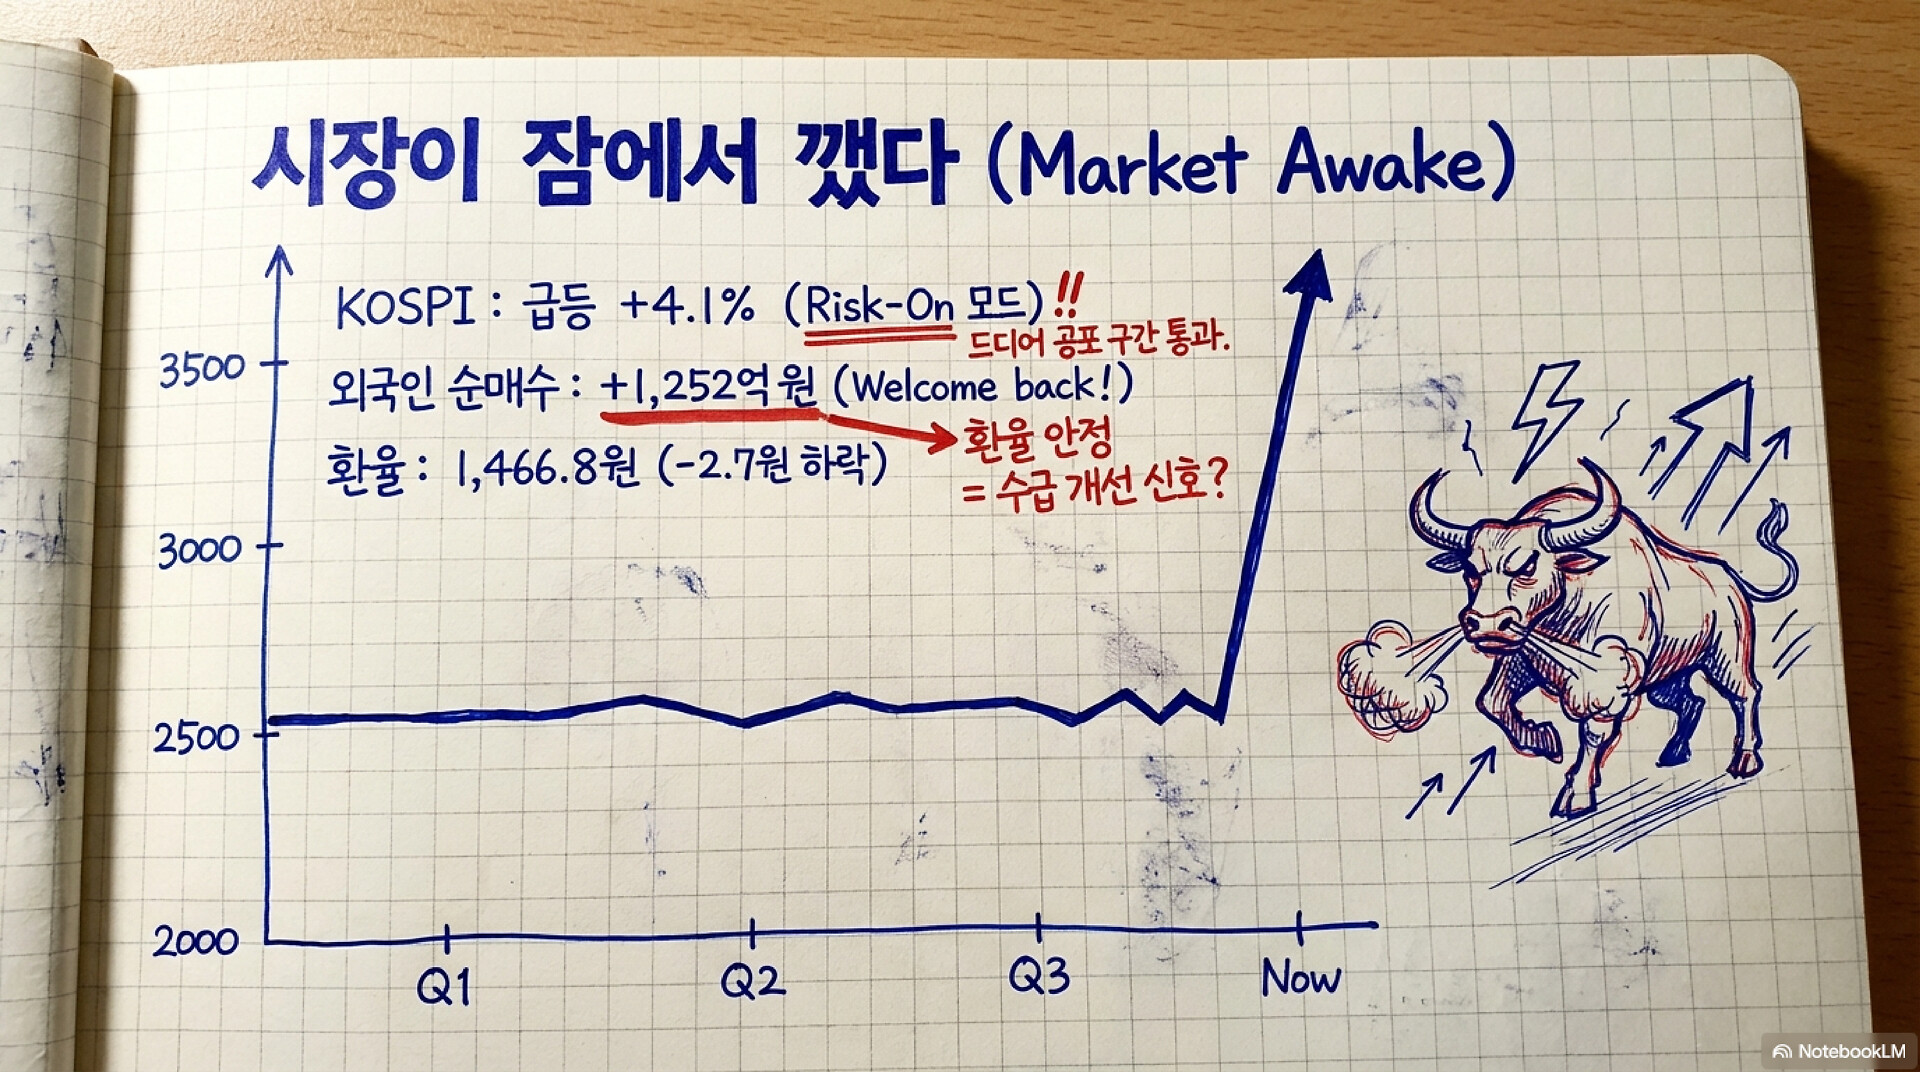 시장이 잠에서 깼다 (Market Awake)
KOSPI : 급등 +4.1% (Risk-On 모드)!!
드디어 공포 구간 통과.
외국인 순매수 : +1,252억 원 (Welcome back!)
환율 안정
= 수급 개선 신호?
환율 : 1,466.8원 (-2.7원 하락)
3500
3000
2500
2000
Q1 Q2 Q3 Now
NotebookLM